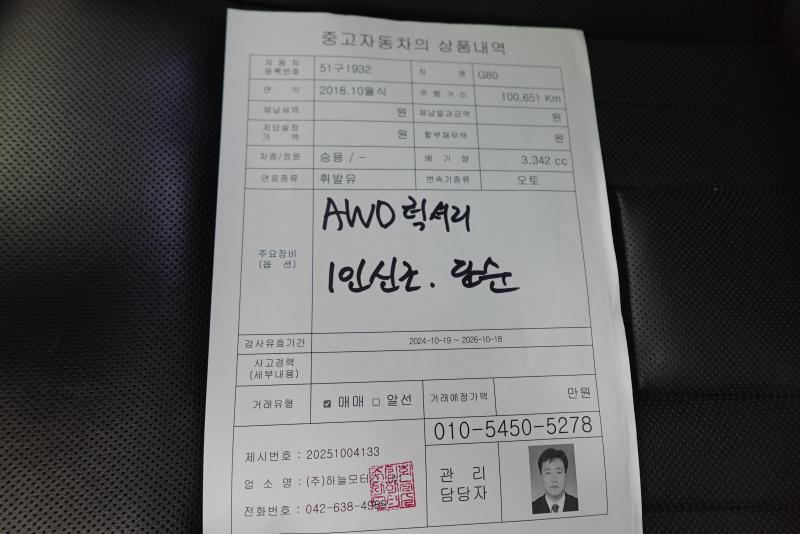 중고자동차의 상품내역
자동차등록번호 51구1932 차명 G80
연식 2018.10월식 주행거리 100,651 Km
체납세액 원 체납벌과금액 원
저당설정가액 원 할부채무액 원
차종/정원 승용 / - 배기량 3,342 cc
연료종류 휘발유 변속기종류 오토
주요장비
(옵 션)
AWD 럭셔리
1인신조. 단순
검사유효기간 2024-10-19 ~ 2026-10-18
사고경력
(세부내용)
거래유형 ☑ 매매 □ 알선 거래예정가액 만원
010-5450-5278
제시번호 : 20251004133
업 소 명 : (주)하늘모터
전화번호 : 042-638-4
관 리
담당자